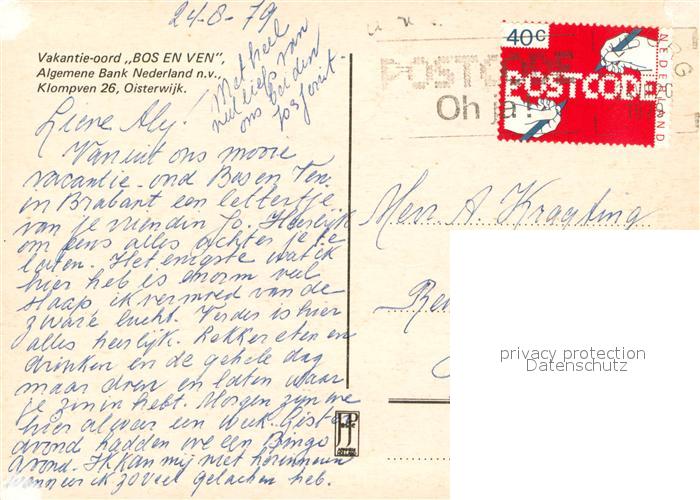 24-8-79
Vakantie-oord „BOS EN VEN",
Algemene Bank Nederland n.v.,
Klompven 26, Oisterwijk.
Met heel
veel liefs van
ons beiden
Jos Gerrit.
Lieve Aly!
Vanuit ons mooie
vacantie-oord Bos en Ven
in Brabant een lettertje
van je vriendin Jo. Heerlijk
om eens alles achter je te
laten. Het enigste wat ik
hier heb is enorm veel
slaap ik vermoed van de
zware lucht. Verder is hier
alles heerlijk. Lekker eten en
drinken en de gehele dag
maar doen en laten waar
je zin in hebt. Morgen zijn we
hier al weer een week. Gister
avond hadden we een Bingo
avond. Ik kan mij niet herinneren
wanneer ik zoveel gelachen heb.
POSTCODE
Oh ja!
40c
POSTCODE
NEDERLAND
Mevr. A. Kragting
privacy protection
Datenschutz